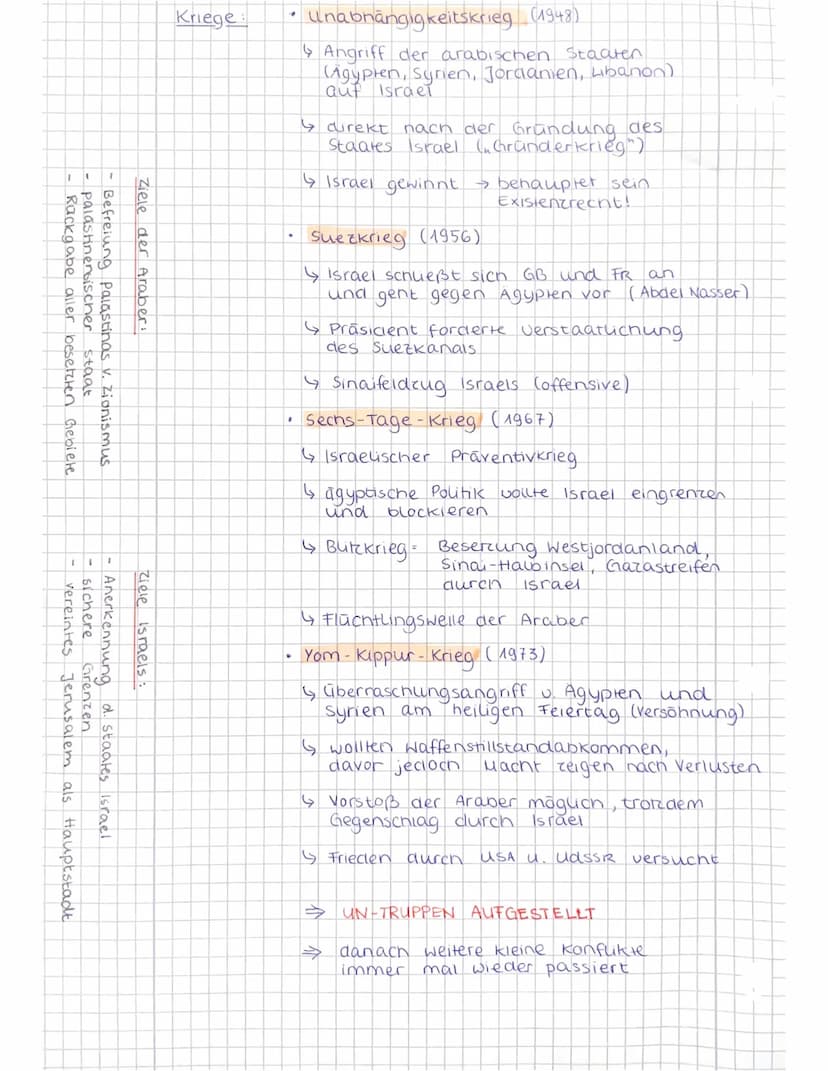 Kriege:
• Unabhängigkeitskrieg (1948)
↳ Angriff der arabischen Staaten
(Ägypten, Syrien, Jordanien, Libanon)
auf Israel
↳ direkt nach der Gründung des
Staates Israel („Gründerkrieg")
↳ Israel gewinnt → behauptet sein
Existenzrecht!
• Suezkrieg (1956)
↳ Israel schließt sich GB und FR an
und geht gegen Ägypten vor (Abdel Nasser)
↳ Präsident forderte Verstaatlichung
des Suezkanals
↳ Sinaifeldzug Israels (offensive)
• Sechs-Tage-Krieg (1967)
↳ Israelischer Präventivkrieg
↳ ägyptische Politik wollte Israel eingrenzen
und blockieren
↳ Blitzkrieg = Besetzung Westjordanland,
Sinai-Halbinsel, Gazastreifen
durch Israel
↳ Flüchtlingswelle der Araber
• Yom-Kippur-Krieg (1973)
↳ Überraschungsangriff v. Ägypten und
Syrien am heiligen Feiertag (Versöhnung)
↳ wollten Waffenstillstandabkommen,
davor jedoch Macht zeigen nach Verlusten
↳ Vorstoß der Araber möglich, trotzdem
Gegenschlag durch Israel
↳ Frieden durch USA u. UdSSR versucht
⇒ UN-TRUPPEN AUFGESTELLT
⇒ danach weitere kleine Konflikte
immer mal wieder passiert
Ziele der Araber:
- Befreiung Palästinas v. Zionismus
- palästinensischer Staat
- Rückgabe aller besetzten Gebiete
Ziele Israels:
- Anerkennung d. Staates Israel
- sichere Grenzen
- vereintes Jerusalem als Hauptstadt